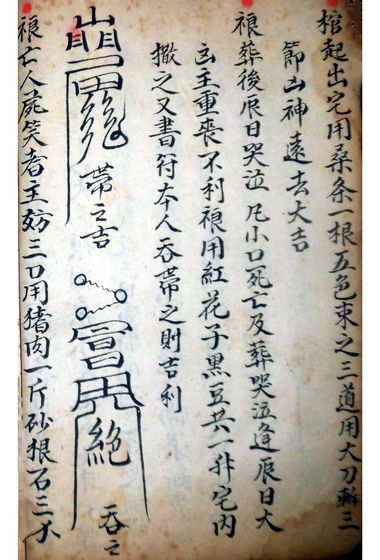 棺起出宅用桑条一根五色束之三道用大刀斬三
節凶神遠去大吉
禳葬後辰日哭泣凡小口死亡及葬哭泣逢辰日大
凶主重喪不利禳用紅花子黑豆共一升宅内
撒之又書符本人吞帶之則吉利
帶之吉
吞之
禳亡人屍笑者主妨三口用猪肉一斤砂根石三个